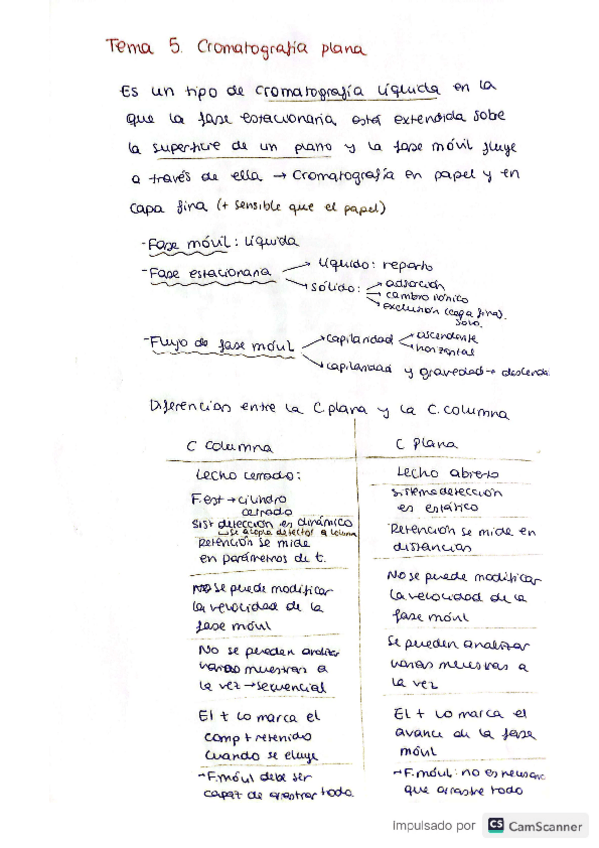 Tema 5. Cromatografía plana
Es un tipo de cromatografía líquida en la
que la fase estacionaria está extendida sobre
la superficie de un plano y la fase móvil fluye
a través de ella → Cromatografía en papel y en
capa fina (+ sensible que el papel)
- Fase móvil: líquida
- Fase estacionaria → líquido: reparto
→ sólido: → adsorción
→ cambio iónico
→ exclusión (capa fina).
solo.
- Flujo de fase móvil → capilaridad → ascendente
→ horizontal
→ capilaridad y gravedad → descend.
Diferencias entre la C.plana y la C.columna
C columna
Lecho cerrado:
F.est → cilindro
cerrado
Sist detección es dinámico
↳ se acopla detector a columna
Retención se mide
en parámetros de t.
No se puede modificar
la velocidad de la
fase móvil
No se pueden analizar
varias muestras a
la vez → secuencial
El t lo marca el
comp + retenido
cuando se eluye
- F.móvil debe ser
capaz de arrastrar todo.
C Plana
Lecho abierto
Sistema detección
es estático
Retención se mide en
distancias
No se puede modificar
la velocidad de la
fase móvil
Se pueden analizar
varias muestras a
la vez
El t lo marca el
avance de la fase
móvil
- F.móvil: no es necesario
que arrastre todo
Impulsado por CS CamScanner